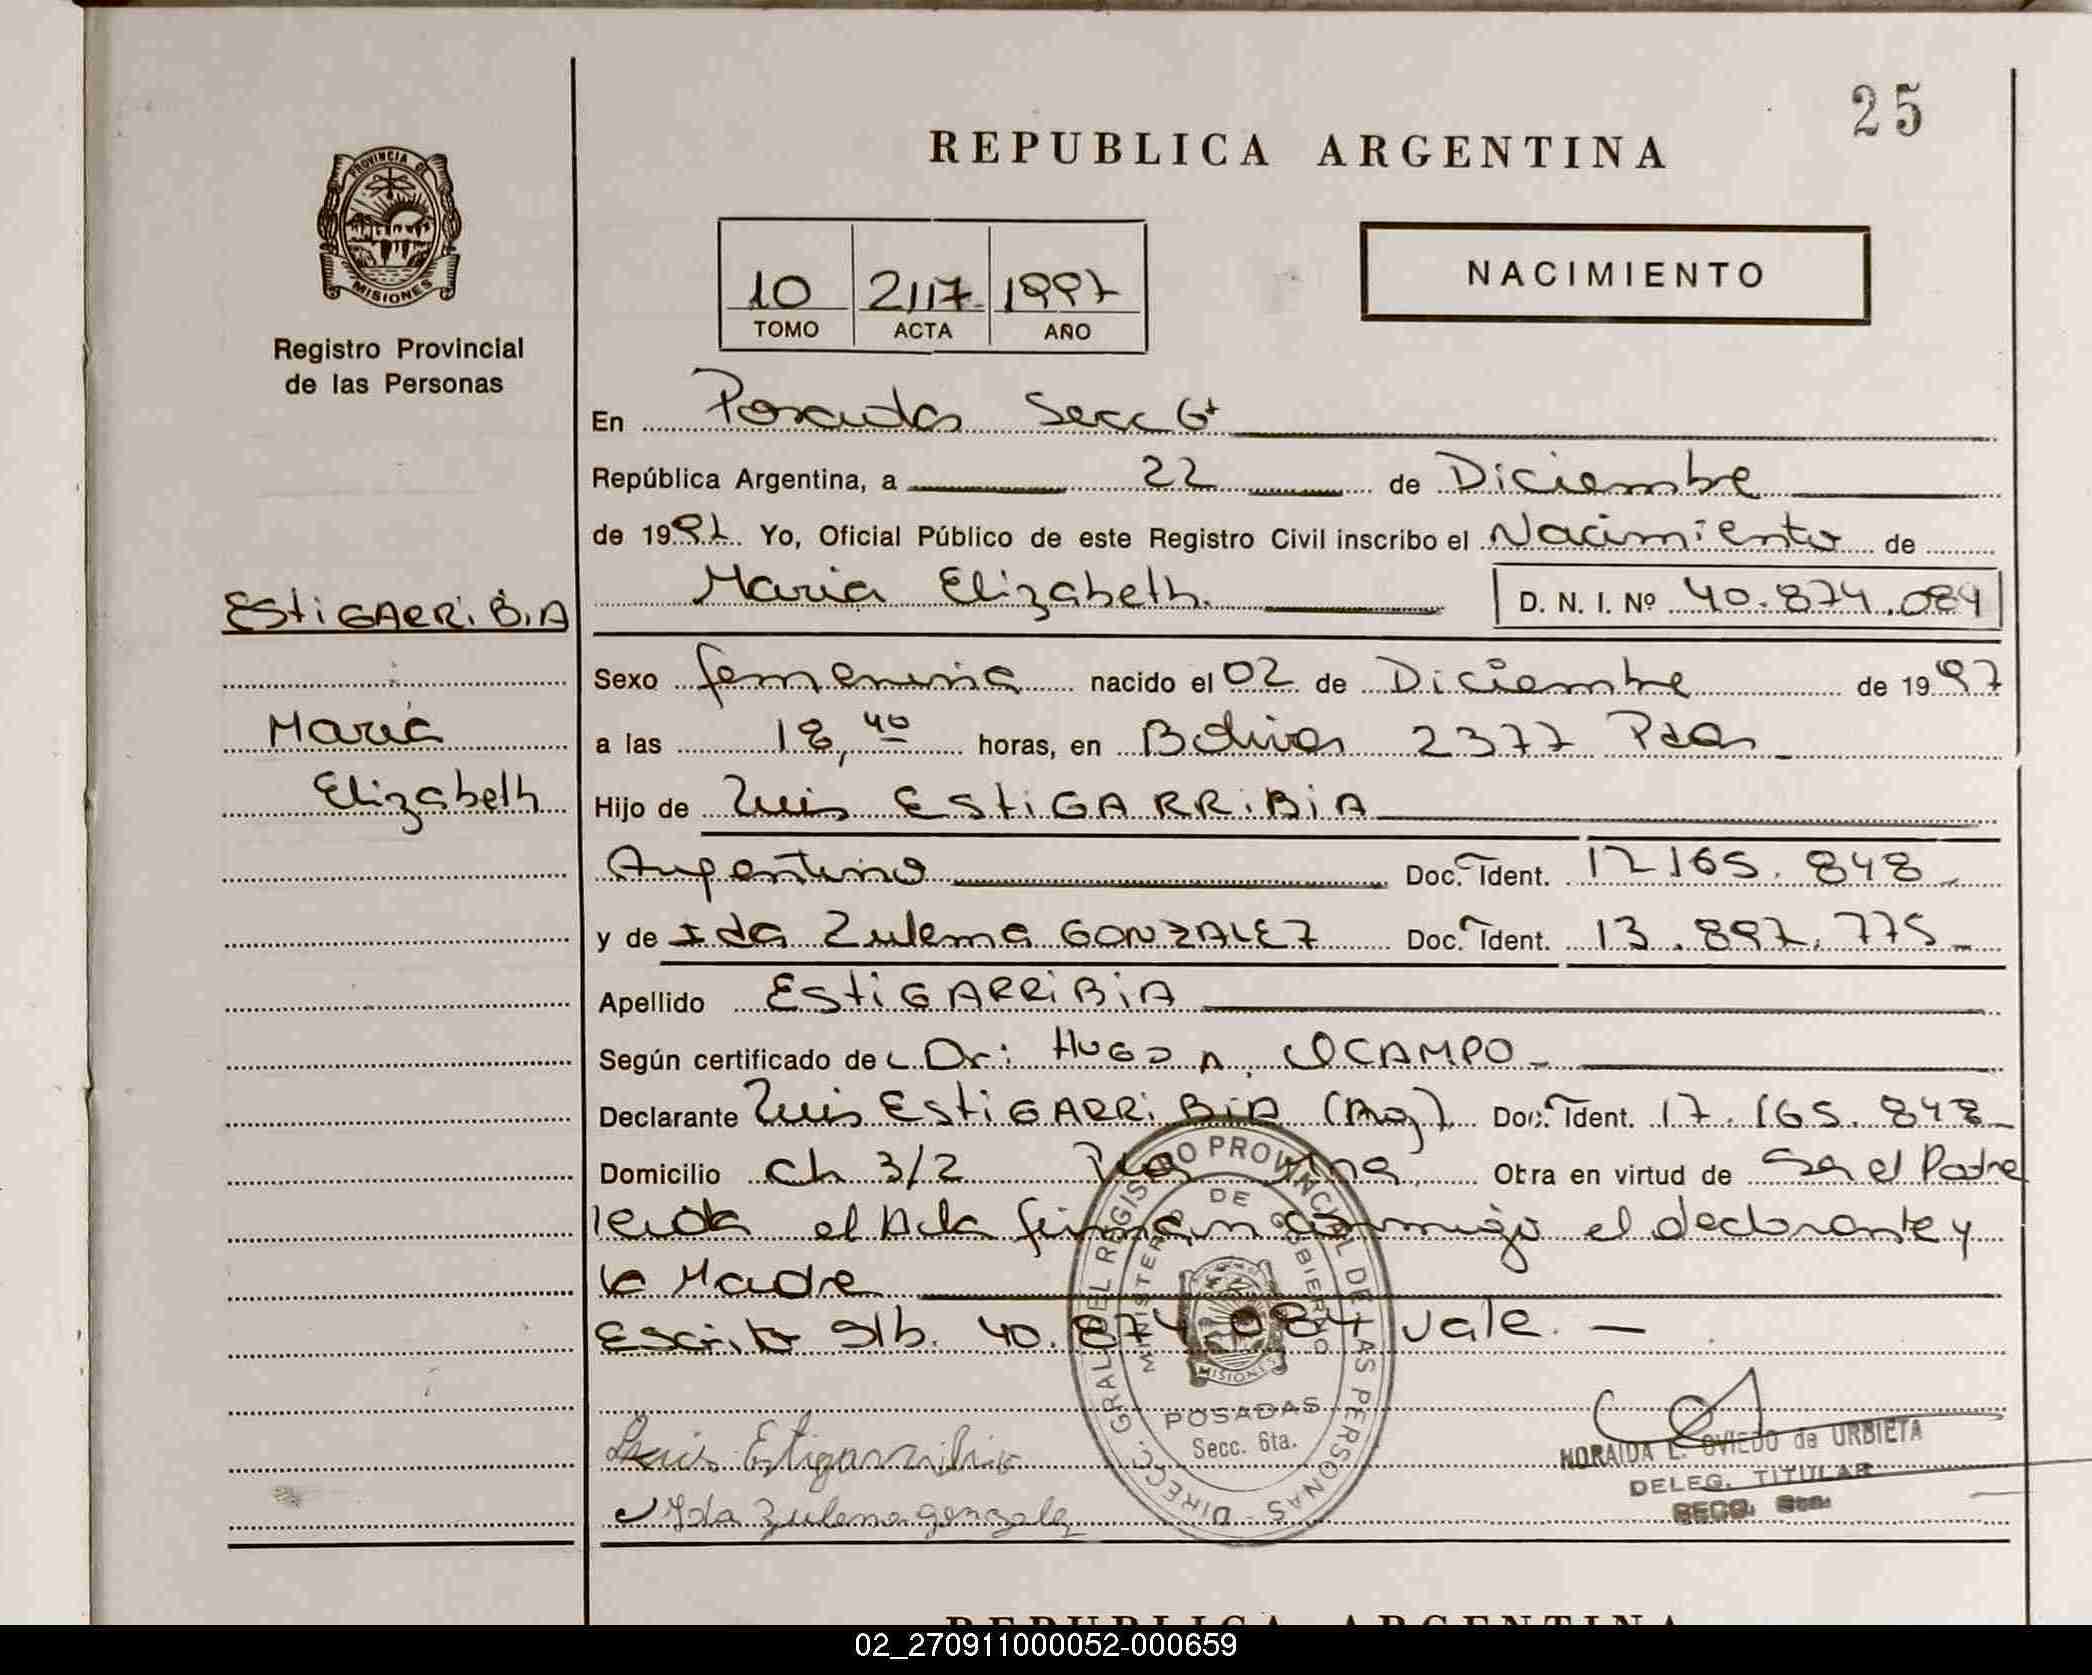 25
REPUBLICA ARGENTINA
PROVINCIA DE
MISIONES
Registro Provincial
de las Personas
10 2117 1997
TOMO ACTA AÑO
NACIMIENTO
En Posadas Secc 6ta
República Argentina, a 22 de Diciembre
de 1997 Yo, Oficial Público de este Registro Civil inscribo el Nacimiento de
Maria Elizabeth D. N. I. Nº 40.874.084
ESTIGARRIBIA
Sexo femenina nacido el 02 de Diciembre de 1997
Maria
a las 18,40 horas, en Bolivar 2377 Pdas
Elizabeth
Hijo de Luis ESTIGARRIBIA
Argentino Doc. Ident. 17165.848
y de Ida Zulema GONZALEZ Doc. Ident. 13.897.775
Apellido ESTIGARRIBIA
Según certificado de Dr: HUGO A. OCAMPO
Declarante Luis ESTIGARRIBIA (Arg) Doc. Ident. 17.165.848
Domicilio Ch 3/2 Pdas Mnes Obra en virtud de Ser el Padre
leida el Acta firman conmigo el declarante y
la Madre
Escrito S/b. 40.874.084 vale. —
DIRECC. GRAL. DEL REGISTRO PROVINCIAL DE LAS PERSONAS
MINISTERIO DE GOBIERNO
MISIONES
POSADAS
Secc. 6ta.
Luis Estigarribia
Ida Zulema Gonzalez
NORAIDA L. OVIEDO de URBIETA
DELEG. TITULAR
SECC. 6ta.
REPUBLICA ARGENTINA
02_270911000052-000659